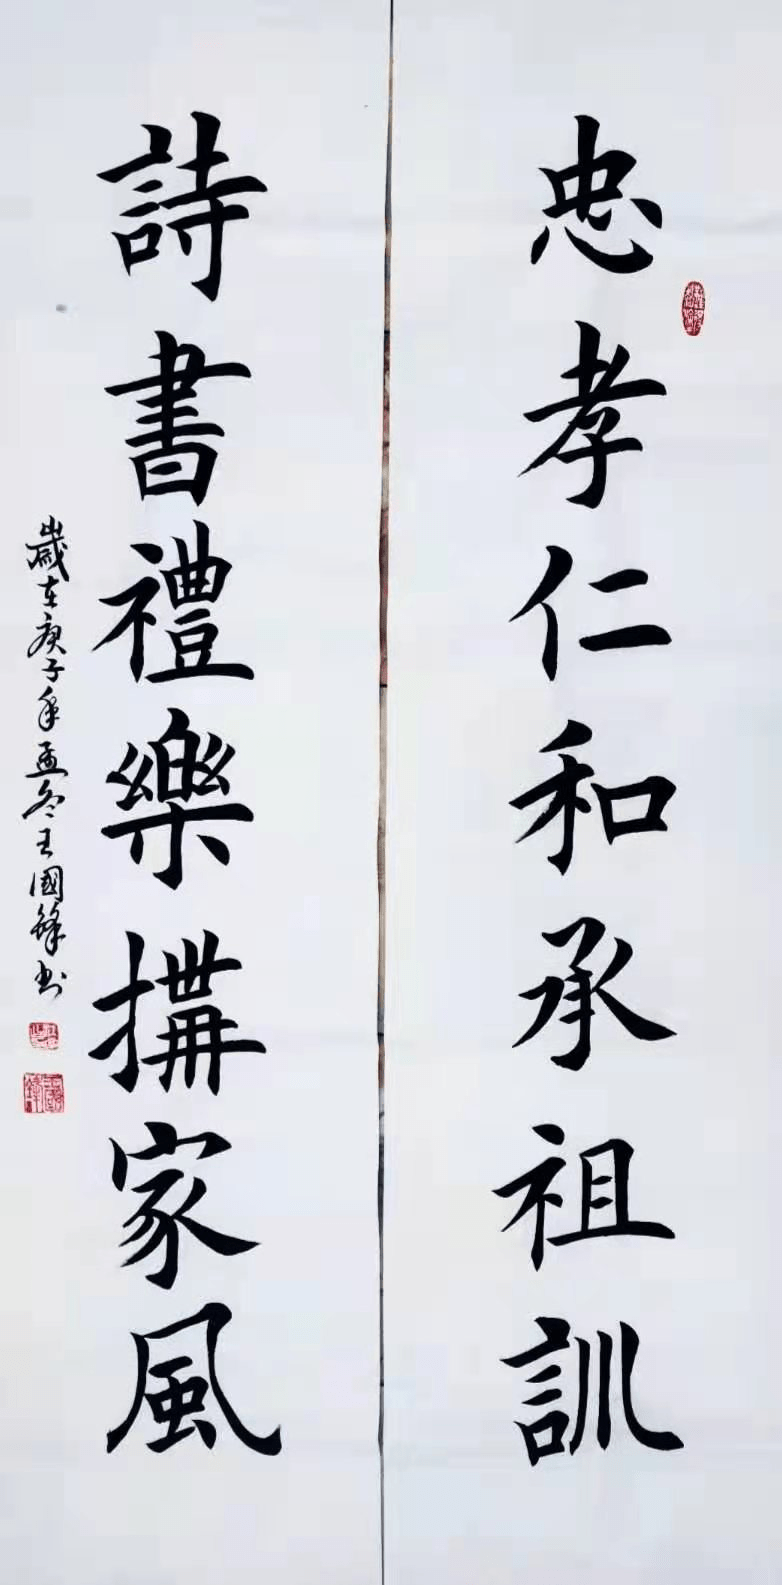 忠孝仁和承祖訓
詩書禮樂搆家風
歲在庚子年孟冬王國鋒书